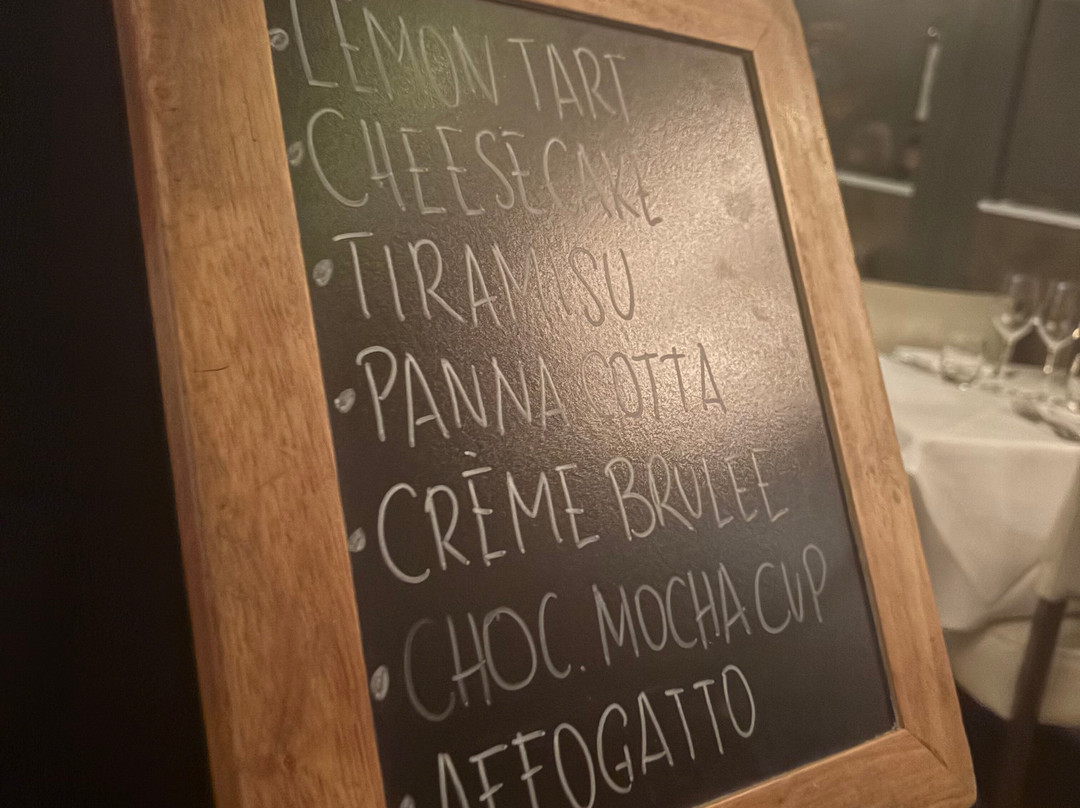 LEMON TART
CHEESECAKE
TIRAMISU
PANNA COTTA
CRÈME BRULEE
CHOC. MOCHA CUP
AFFOGATTO